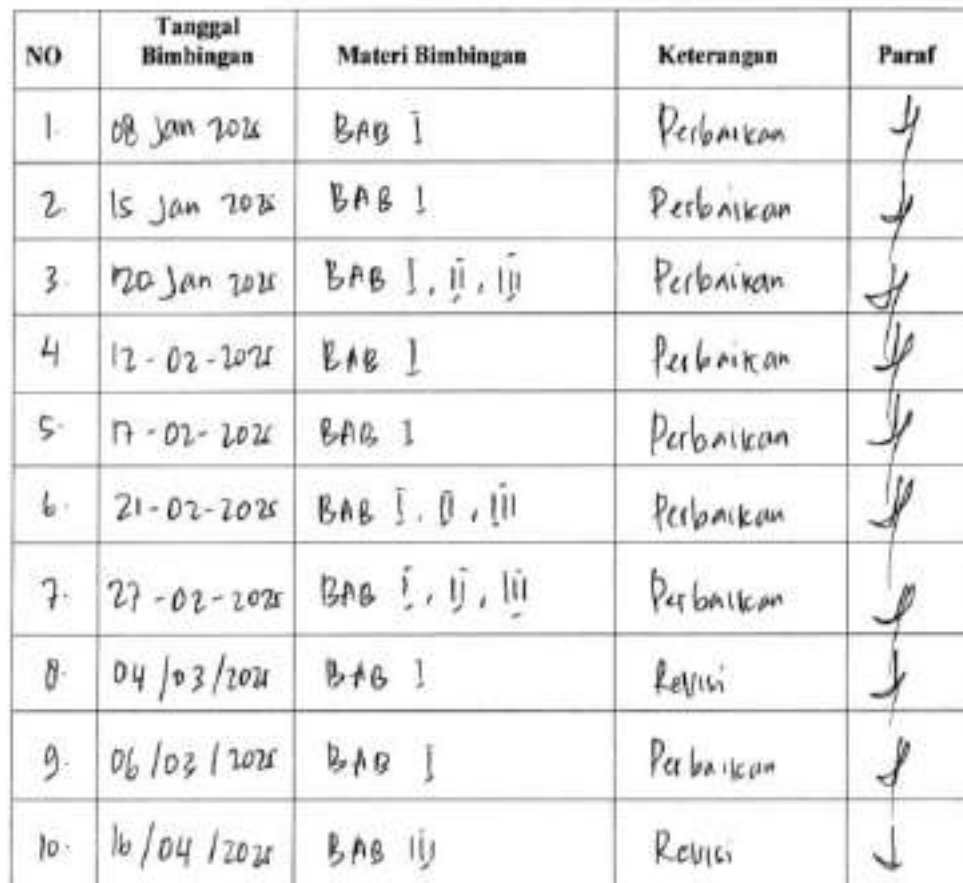 NO Tanggal Bimbingan Materi Bimbingan Keterangan Paraf
1. 08 Jan 2025 BAB I Perbaikan
2. 15 Jan 2025 BAB I Perbaikan
3. 20 Jan 2025 BAB I, II, III Perbaikan
4 12-02-2025 BAB I Perbaikan
5. 17-02-2025 BAB I Perbaikan
6. 21-02-2025 BAB I, II, III Perbaikan
7. 27-02-2025 BAB I, II, III Perbaikan
8. 04/03/2025 BAB I Revisi
9. 06/03/2025 BAB I Perbaikan
10. 16/04/2025 BAB III Revisi